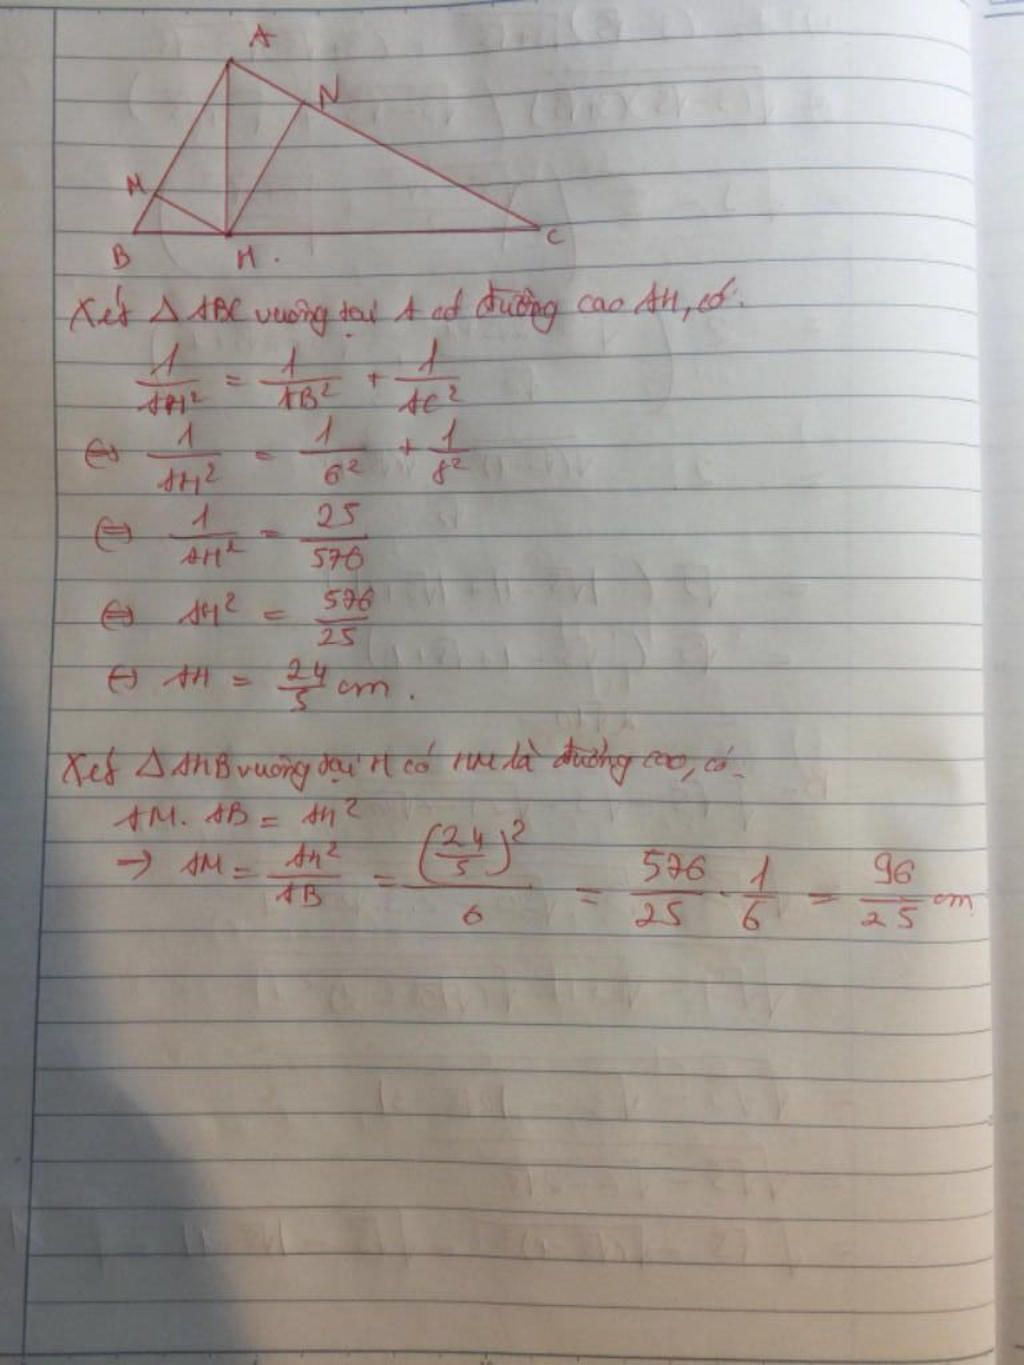 A
N
M
B
H.
C
Xét △ ABC vuông tại A có đường cao AH, có.
1/AH² = 1/AB² + 1/AC²
⇔ 1/AH² = 1/6² + 1/8²
⇔ 1/AH² = 25/576
⇔ AH² = 576/25
⇔ AH = 24/5 cm.
Xét △ AHB vuông tại H có HM là đường cao, có
AM. AB = AH²
→ AM = AH²/AB = (24/5)²/6 = 576/25 . 1/6 = 96/25 cm